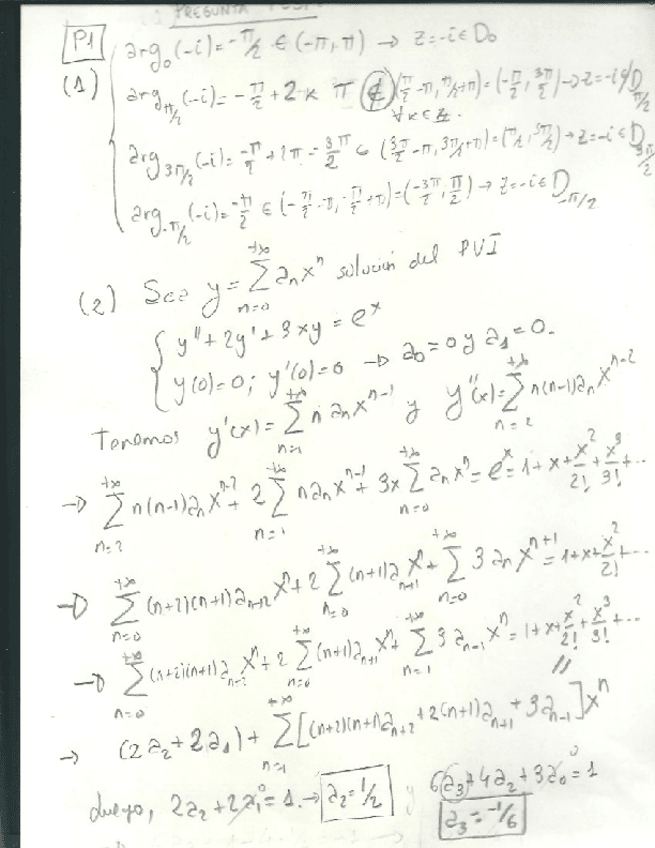 PREGUNTA
P1
(1)
arg₀(-i) = -π/2 ∈ (-π, π) → z = -i ∈ D₀
arg_{π/2}(-i) = -π/2 + 2kπ ∉ (π/2 - π, π/2 + π) = (-π/2, 3π/2) → z = -i ∉ D_{π/2}
∀ k ∈ ℤ.
arg_{3π/2}(-i) = -π/2 + 2π = 3π/2 ∈ (3π/2 - π, 3π/2 + π) = (π/2, 5π/2) → z = -i ∈ D_{3π/2}
arg_{-π/2}(-i) = -π/2 ∈ (-π/2 - π, -π/2 + π) = (-3π/2, π/2) → z = -i ∈ D_{-π/2}
(2) Sea y = ∑_{n=0}^{+∞} aₙxⁿ solución del PVI
{ y'' + 2y' + 3xy = eˣ
y(0) = 0; y'(0) = 0 → a₀ = 0 y a₁ = 0.
Tenemos y'(x) = ∑_{n=1}^{+∞} n aₙ xⁿ⁻¹ y y''(x) = ∑_{n=2}^{+∞} n(n-1)aₙ xⁿ⁻²
→ ∑_{n=2}^{+∞} n(n-1)aₙ xⁿ⁻² + 2 ∑_{n=1}^{+∞} n aₙ xⁿ⁻¹ + 3x ∑_{n=0}^{+∞} aₙ xⁿ = eˣ = 1 + x + x²/2! + x³/3! + ...
→ ∑_{n=0}^{+∞} (n+2)(n+1)aₙ₊₂ xⁿ + 2 ∑_{n=0}^{+∞} (n+1)aₙ₊₁ xⁿ + ∑_{n=0}^{+∞} 3aₙ xⁿ⁺¹ = 1 + x + x²/2! + ...
→ ∑_{n=0}^{+∞} (n+2)(n+1)aₙ₊₂ xⁿ + 2 ∑_{n=0}^{+∞} (n+1)aₙ₊₁ xⁿ + ∑_{n=1}^{+∞} 3aₙ₋₁ xⁿ = 1 + x + x²/2! + x³/3! + ...
//
→ (2a₂ + 2a₁) + ∑_{n=1}^{+∞} [(n+2)(n+1)aₙ₊₂ + 2(n+1)aₙ₊₁ + 3aₙ₋₁] xⁿ
luego, 2a₂ + 2a₁⁰ = 1. → a₂ = 1/2 y 6a₃ + 4a₂ + 3a₀⁰ = 1
a₃ = -1/6